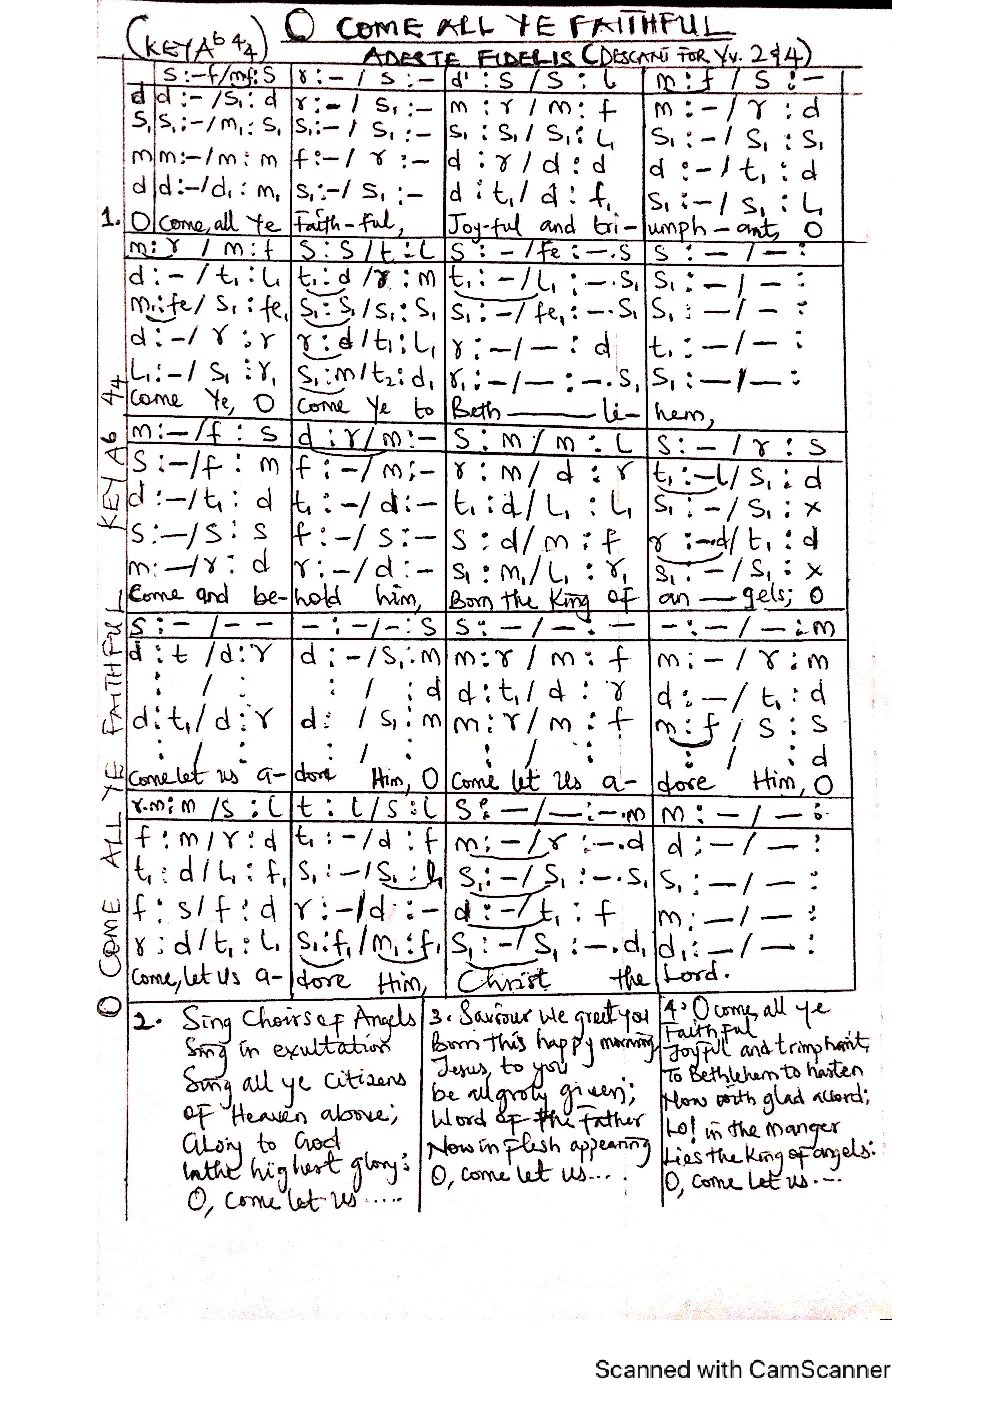 O COME ALL YE FAITHFUL
(KEY Ab 4/4)
ADESTE FIDELIS (DESCANT FOR Vv. 2 & 4)
s:-f/mf:s | r:-/s:- | d':s/s:l | m:f/s:-
d | d:-/s₁:d | r:-/s₁:- | m:r/m:f | m:-/r:d
s₁ | s₁:-/m₁:s₁ | s₁:-/s₁:- | s₁:s₁/s₁:l₁ | s₁:-/s₁:s₁
m | m:-/m:m | f:-/r:- | d:r/d:d | d:-/t₁:d
d | d:-/d₁:m₁ | s₁:-/s₁:- | d:t₁/d:f₁ | s₁:-/s₁:l₁
1. O | Come, all Ye | Faith-ful, | Joy-ful and tri- | umph-ant, O
m:r/m:f | s:s/t:l | s:-/fe:-.s | s:-/-:
d:-/t₁:l₁ | t₁:d/r:m | t₁:-/l₁:-.s₁ | s₁:-/-:
m₁:fe/s₁:fe₁ | s₁:s₁/s₁:s₁ | s₁:-/fe₁:-.s₁ | s₁:-/-:
d:-/r:r | r:d/t₁:l₁ | r:-/-:d | t₁:-/-:
l₁:-/s₁:r₁ | s₁:m/t₂:d₁ | r₁:-/-:-.s₁ | s₁:-/-:
Come Ye, O | Come Ye to | Beth———li- | hem,
m:-/f:s | d:r/m:- | s:m/m:l | s:-/r:s
s:-/f:m | f:-/m:- | r:m/d:r | t₁:-l/s₁:d
d:-/t₁:d | t₁:-/d:- | t₁:d/l₁:l₁ | s₁:-/s₁:x
s:-/s:s | f:-/s:- | s:d/m:f | r:-d/t₁:d
m:-/r:d | r:-/d:- | s₁:m₁/l₁:r₁ | s₁:-/s₁:x
Come and be- | hold him, | Born the King of | an—gels; O
s:-/-- | -:-/-:s | s:-/-:- | -:-/-:m
d:t/d:r | d:-/s₁:m | m:r/m:f | m:-/r:m
:/: | :/:d | d:t₁/d:r | d:-/t₁:d
d:t₁/d:r | d:/s₁:m | m:r/m:f | m:f/s:s
:/: | :/: | :/: | :/:d
Come let us a- | dore Him, O | Come let us a- | dore Him, O
r.m:m/s:l | t:l/s:l | s:-/-:-.m | m:-/-:
f:m/r:d | t₁:-/d:f | m:-/r:-.d | d:-/-:
t₁:d/l₁:f₁ | s₁:-/s₁:l₁ | s₁:-/s₁:-.s₁ | s₁:-/-:
f:s/f:d | r:-/d:- | d:-/t₁:f | m:-/-:
r:d/t₁:l₁ | s₁:f₁/m₁:f₁ | s₁:-/s₁:-.d₁ | d₁:-/-:
Come, let us a- | dore Him, | Christ the | Lord.
O COME ALL YE FAITHFUL KEY Ab 4/4
2. Sing Choirs of Angels
Sing in exultation
Sing all ye citizens
of Heaven above;
Glory to God
in the highest glory:
O, come let us .....
3. Saviour we greet you
Born this happy morning
Jesus, to you
be all glory given;
Word of the Father
Now in flesh appearing
O, come let us....
4. O come, all ye
Faithful
Joyful and trimphant,
To Bethlehem to hasten
Now with glad accord;
Lo! in the manger
Lies the King of angels:
O, come let us...
Scanned with CamScanner